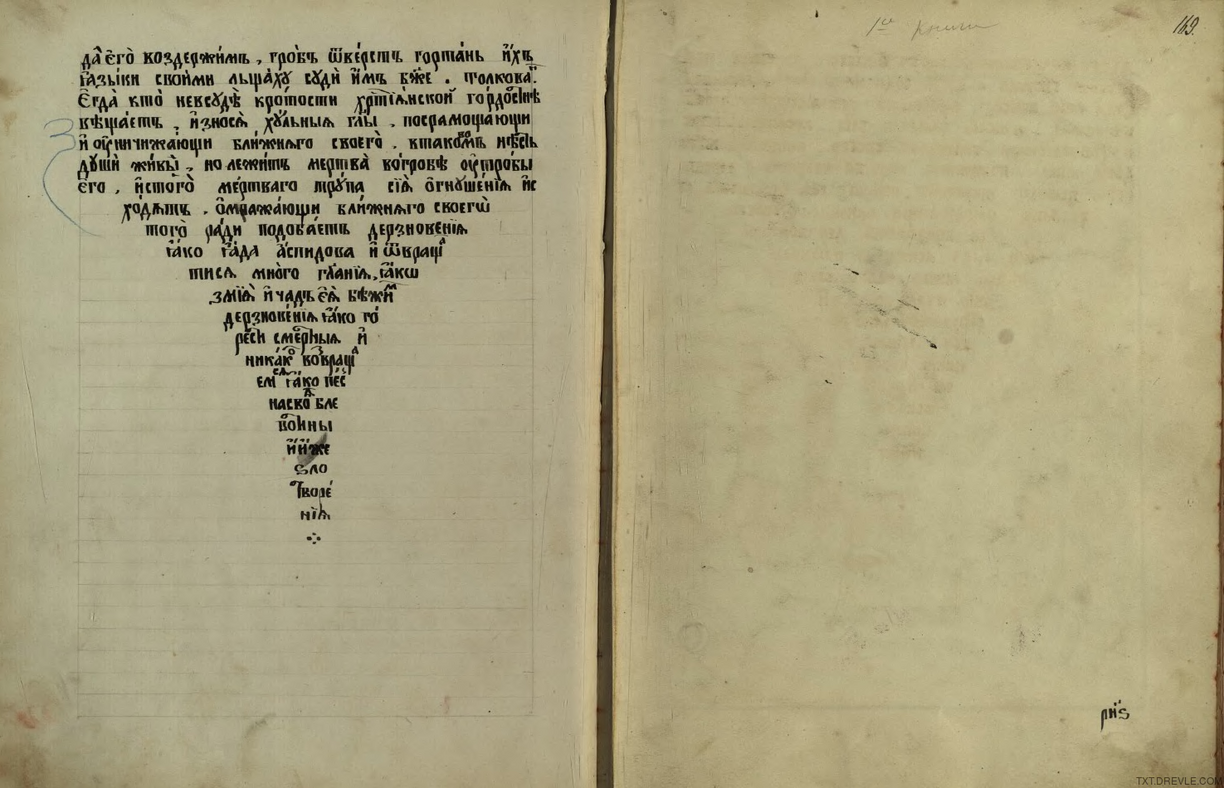 да̀ є҆го̀ воздержи́мъ , гро́бъ ѿве́рстъ горта́нь и҆́хъ
ꙗ҆зы̑ки свои́ми льща́хꙋ сꙋдѝ и҆̀мъ бж҃е . толкова .
Є҆гда̀ кто̀ невсꙋдѣ̀ кро́тости хрⷭ҇тїѧ́нской го́рдостнѣ
вѣща́етъ , и҆знося̀ хꙋ́льныѧ гл҃ы , посрамощающи
и҆ ᲂу҆ничижа́ющи бли́жнѧго своего̀ . втаково́мъ нѣ́сть
дꙋши̑ жи́вы , но лежи́тъ мертва̀ во гро́бѣ ᲂу҆тро́бы
є҆го̀ , и҆стого̀ ме́ртваго трꙋ́па сїѧ̑ ѻ҆гнꙋше́нїѧ и҆с
хо́дѧтъ . ѻ҆мража́ющи бли́жнѧго своегѡ̀
того̀ ра́ди подоба́етъ дерзнове́нїѧ
ꙗ҆́ко га́да а҆́спидова и҆ ѿвраща
тисѧ мно́го гл҃анїѧ, ꙗ҆́кѡ
змїѧ̀ и҆ ча̑дъ є҆ѧ̀ бѣжи́м
дерзнове́нїѧ ꙗ҆́ко го
ре́сти сме́ртныѧ и҆
ника́ко возвраща
емсѧ ꙗ҆́ко пе́с
на своѧ бле
вотины
и҆ и҆́же
ѕло
творе́
нїѧ
1ой книги
169.
рн҃ѕ
TXT.DREVLE.COM